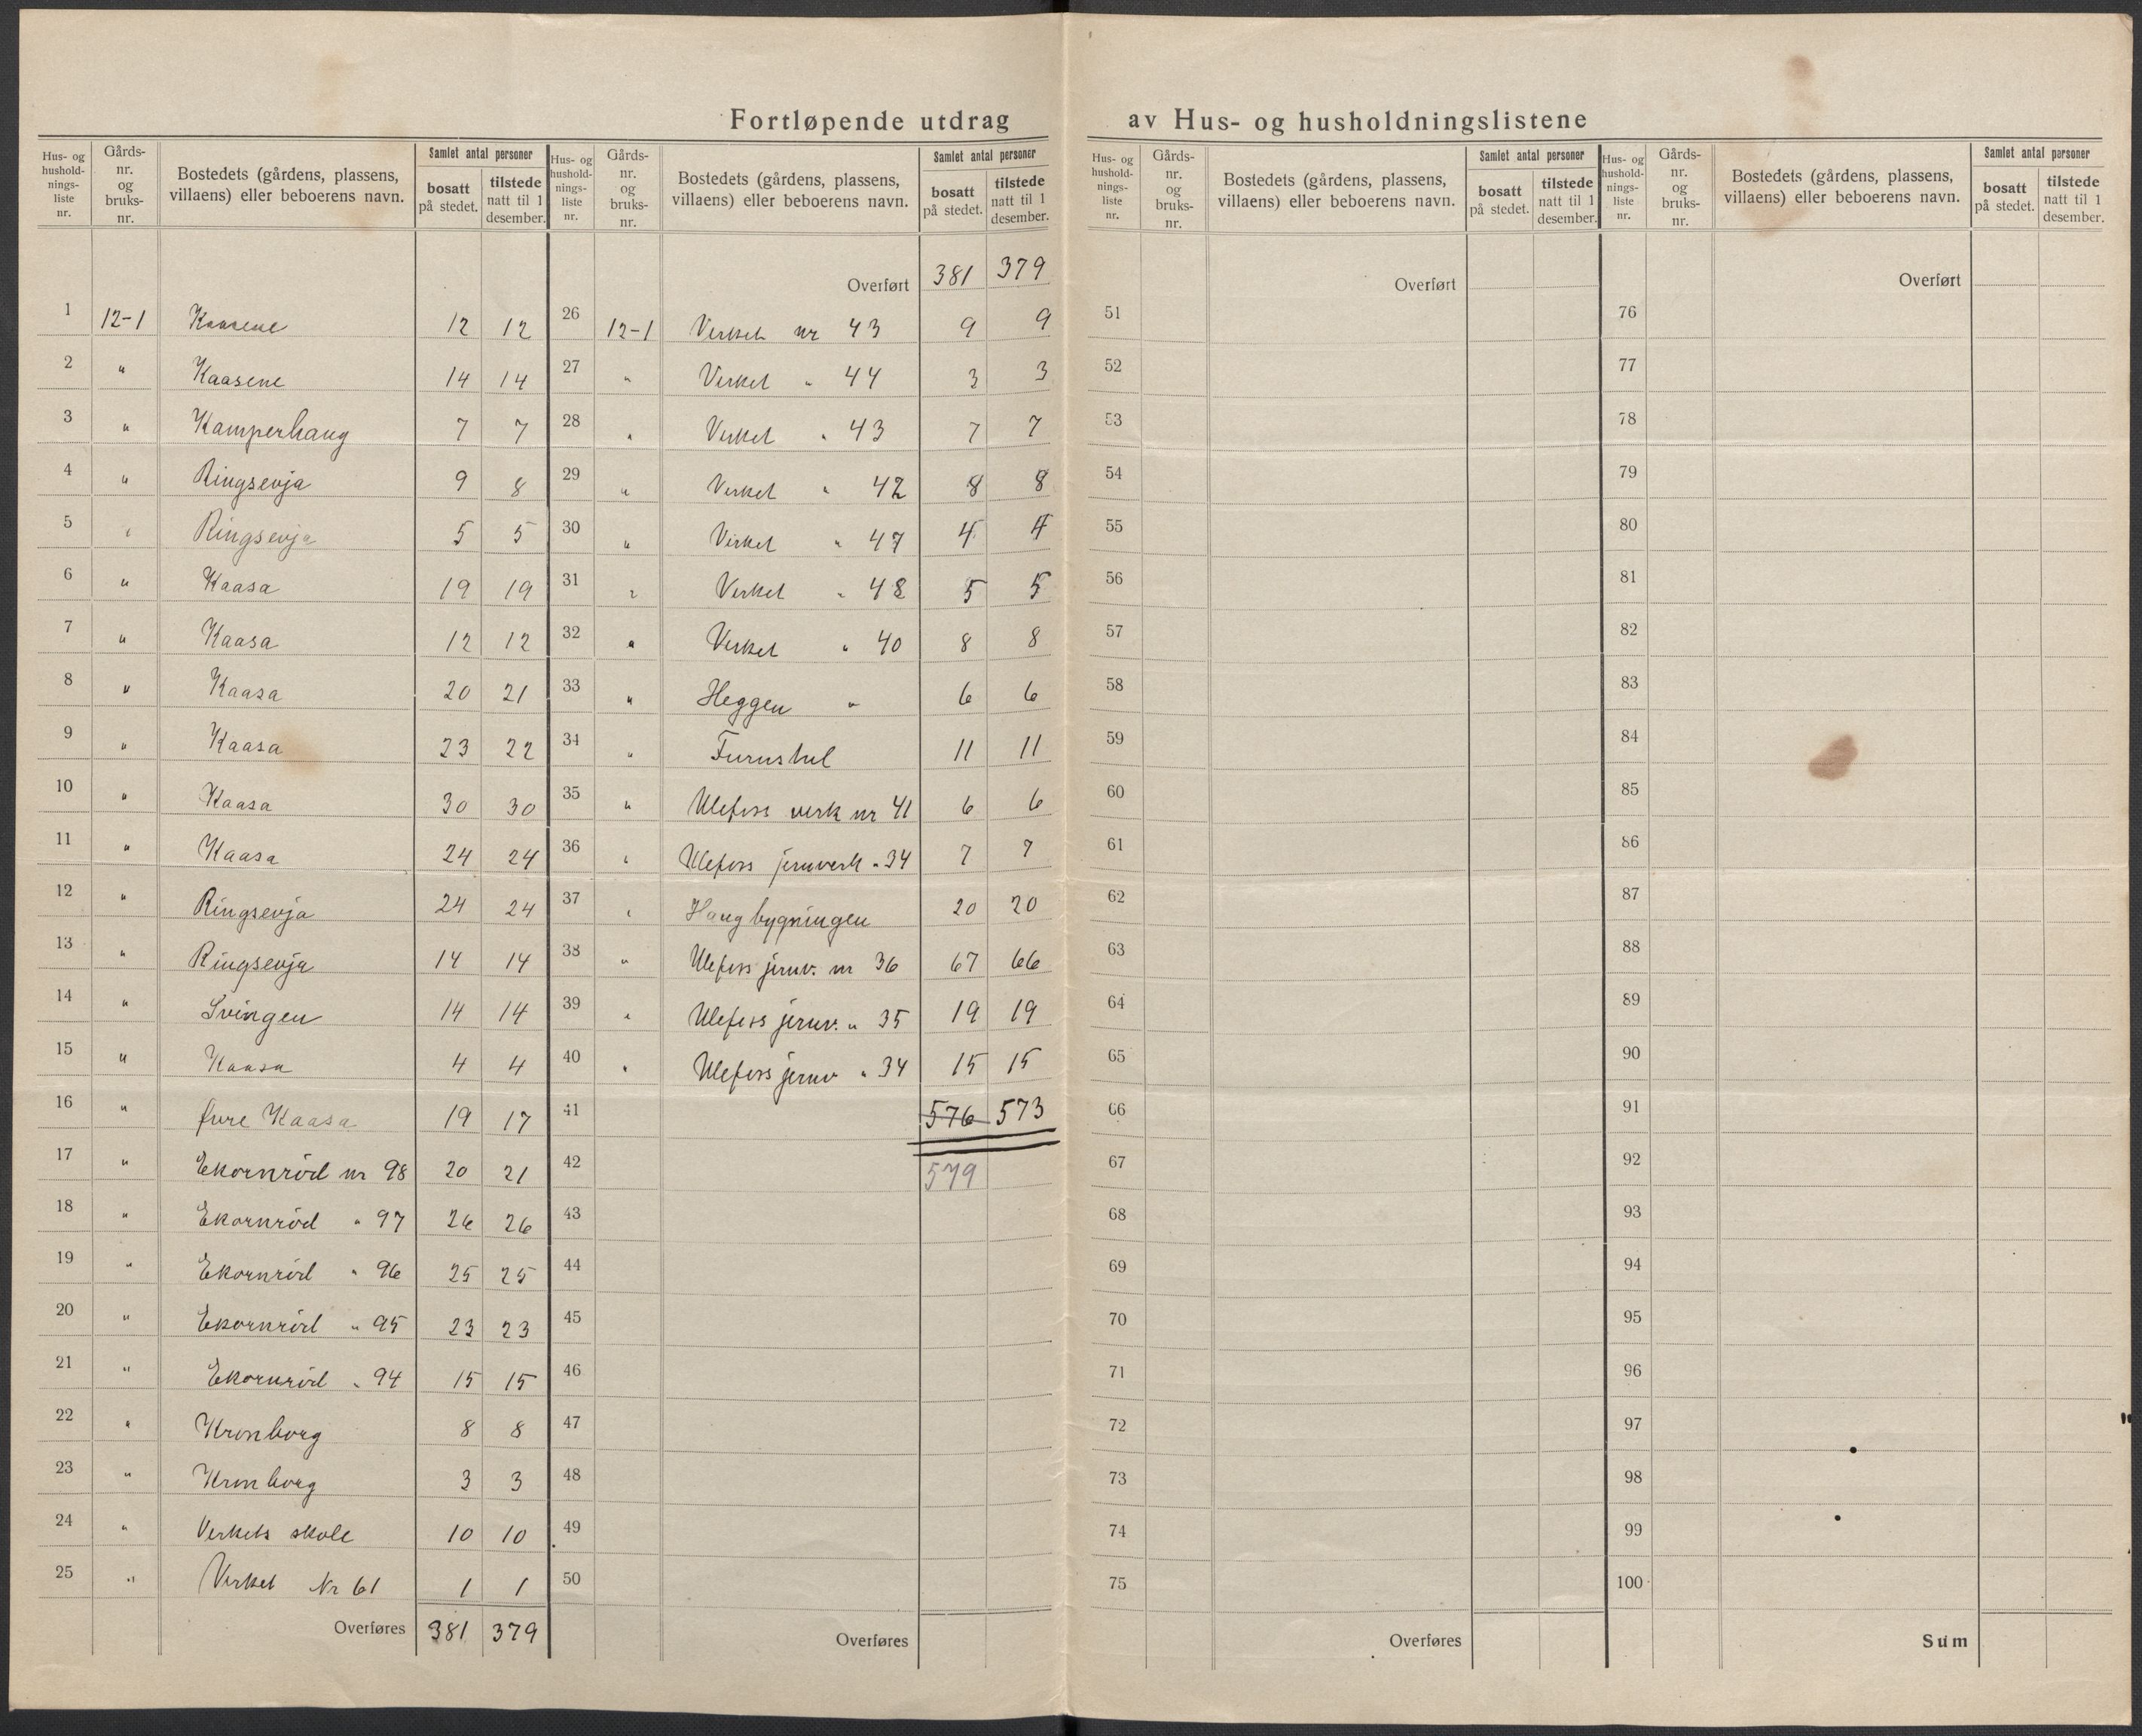 Fortløpende utdrag av Hus- og husholdningslistene
Hus- og husholdnings-liste nr. | Gårds-nr. og bruks-nr. | Bostedets (gårdens, plassens, villaens) eller beboerens navn. | Samlet antal personer | bosatt på stedet. | tilstede natt til 1 desember.
1 12-1 Kaasene 12 12
2 " Kaasene 14 14
3 " Kamperhaug 7 7
4 " Ringsevja 9 8
5 " Ringsevja 5 5
6 " Kaasa 19 19
7 " Kaasa 12 12
8 " Kaasa 20 21
9 " Kaasa 23 22
10 " Kaasa 30 30
11 " Kaasa 24 24
12 " Ringsevja 24 24
13 " Ringsevja 14 14
14 " Svingen 14 14
15 " Kaasa 4 4
16 " fure Kaasa 19 17
17 " Ekornröd nr 98 20 21
18 " Ekornröd " 97 26 26
19 " Ekornröd " 96 25 25
20 " Ekornröd " 95 23 23
21 " Ekornröd " 94 15 15
22 " Kronborg 8 8
23 " Kronborg 3 3
24 " Verkets skole 10 10
25 " Verket Nr 61 1 1
Overføres 381 379
Hus- og husholdnings-liste nr. | Gårds-nr. og bruks-nr. | Bostedets (gårdens, plassens, villaens) eller beboerens navn. | Samlet antal personer | bosatt på stedet. | tilstede natt til 1 desember.
Overført 381 379
26 12-1 Verket nr 43 9 9
27 " Verket " 44 3 3
28 " Verket " 43 7 7
29 " Verket " 42 8 8
30 " Verket " 47 4 4
31 " Verket " 48 5 5
32 " Verket " 40 8 8
33 " Heggen " 6 6
34 " Furustul 11 11
35 " Ulefoss verk nr 41 6 6
36 " Ulefoss jernverk " 34 7 7
37 " Haugbygningen 20 20
38 " Ulefoss jernv. nr 36 67 66
39 " Ulefoss jernv. " 35 19 19
40 " Ulefoss jernv " 34 15 15
41 576 573
42 579
43
44
45
46
47
48
49
50
Overføres
Hus- og husholdnings-liste nr. | Gårds-nr. og bruks-nr. | Bostedets (gårdens, plassens, villaens) eller beboerens navn. | Samlet antal personer | bosatt på stedet. | tilstede natt til 1 desember.
Overført
51
52
53
54
55
56
57
58
59
60
61
62
63
64
65
66
67
68
69
70
71
72
73
74
75
Overføres
Hus- og husholdnings-liste nr. | Gårds-nr. og bruks-nr. | Bostedets (gårdens, plassens, villaens) eller beboerens navn. | Samlet antal personer | bosatt på stedet. | tilstede natt til 1 desember.
Overført
76
77
78
79
80
81
82
83
84
85
86
87
88
89
90
91
92
93
94
95
96
97
98
99
100
Sum